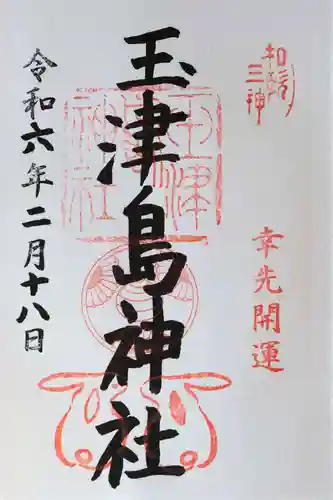 和歌
三神
幸先開運
玉津島神社
玉津島神社
令和六年二月十八日